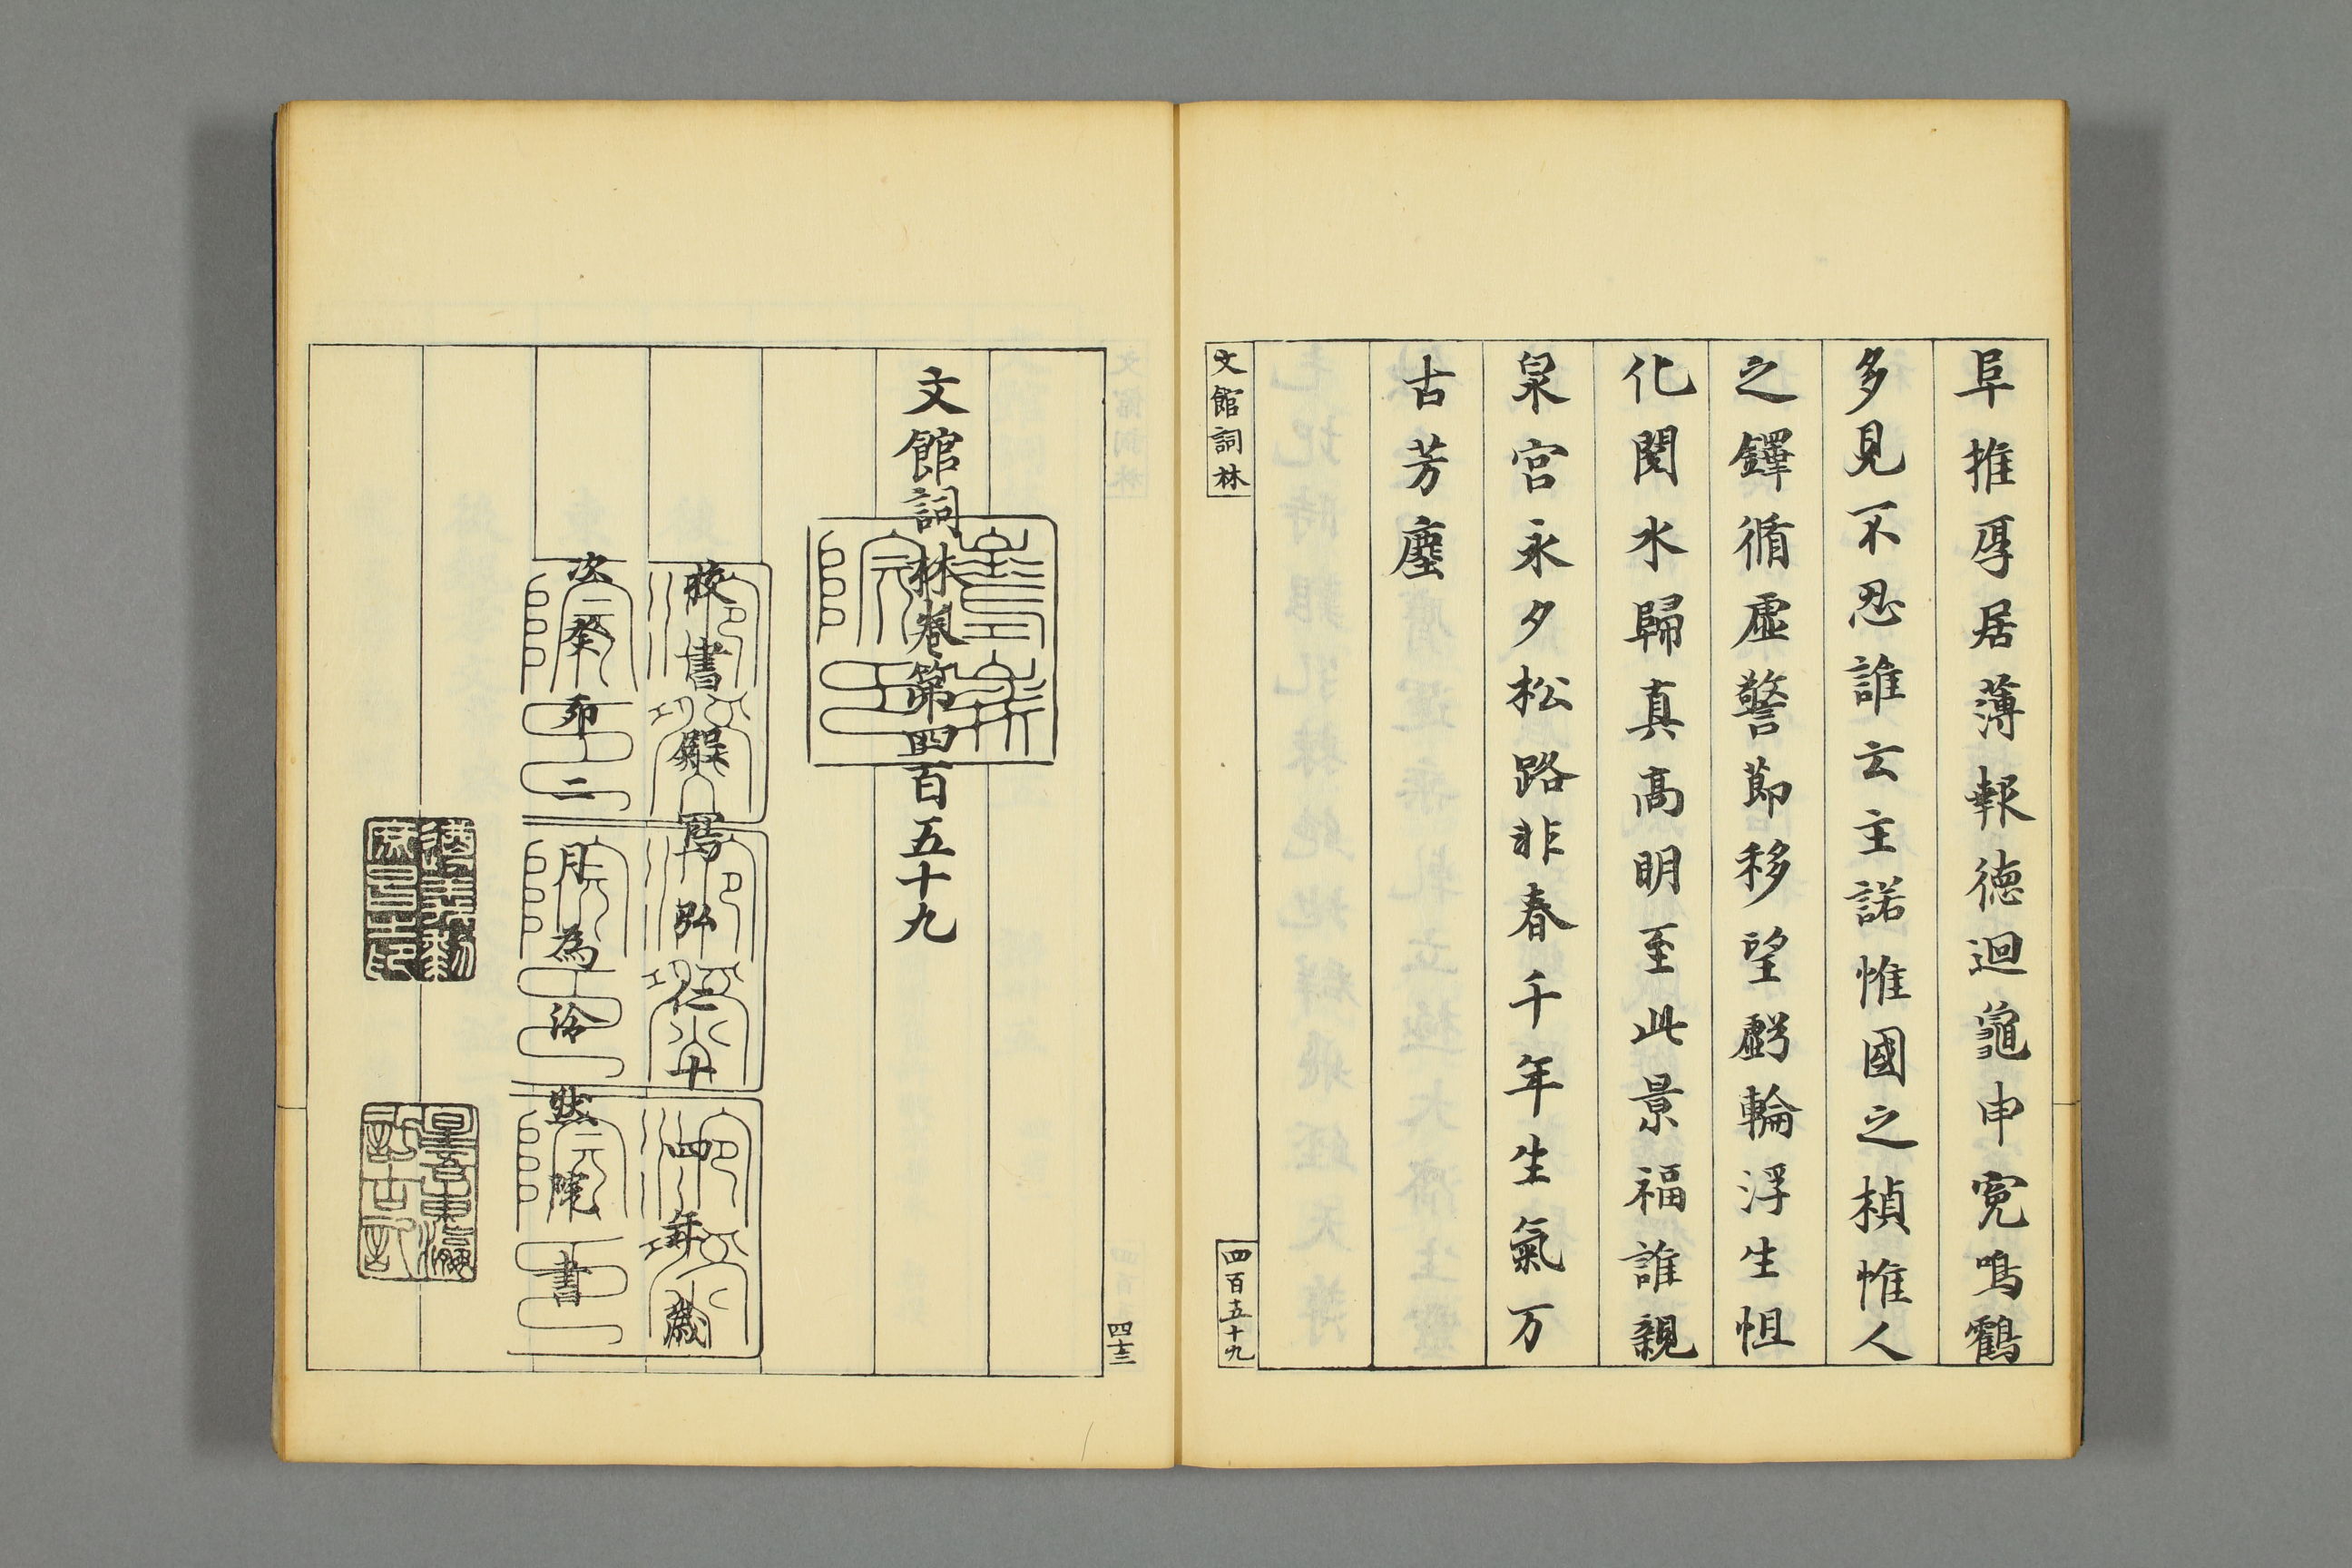 阜推厚居薄報德迴龜申寃鳴鶴
多見不忍誰云主諾惟國之楨惟人
之鐸循虛警節移望虧輪浮生怛
化閱水歸真高明至此景福誰親
泉宮永夕松路非春千年生氣万
古芳塵
文館詞林
四百五十九
文館詞林卷第四百五十九
校書殿寫弘仁十四年歲
次癸卯二月為冷然院書
四十三